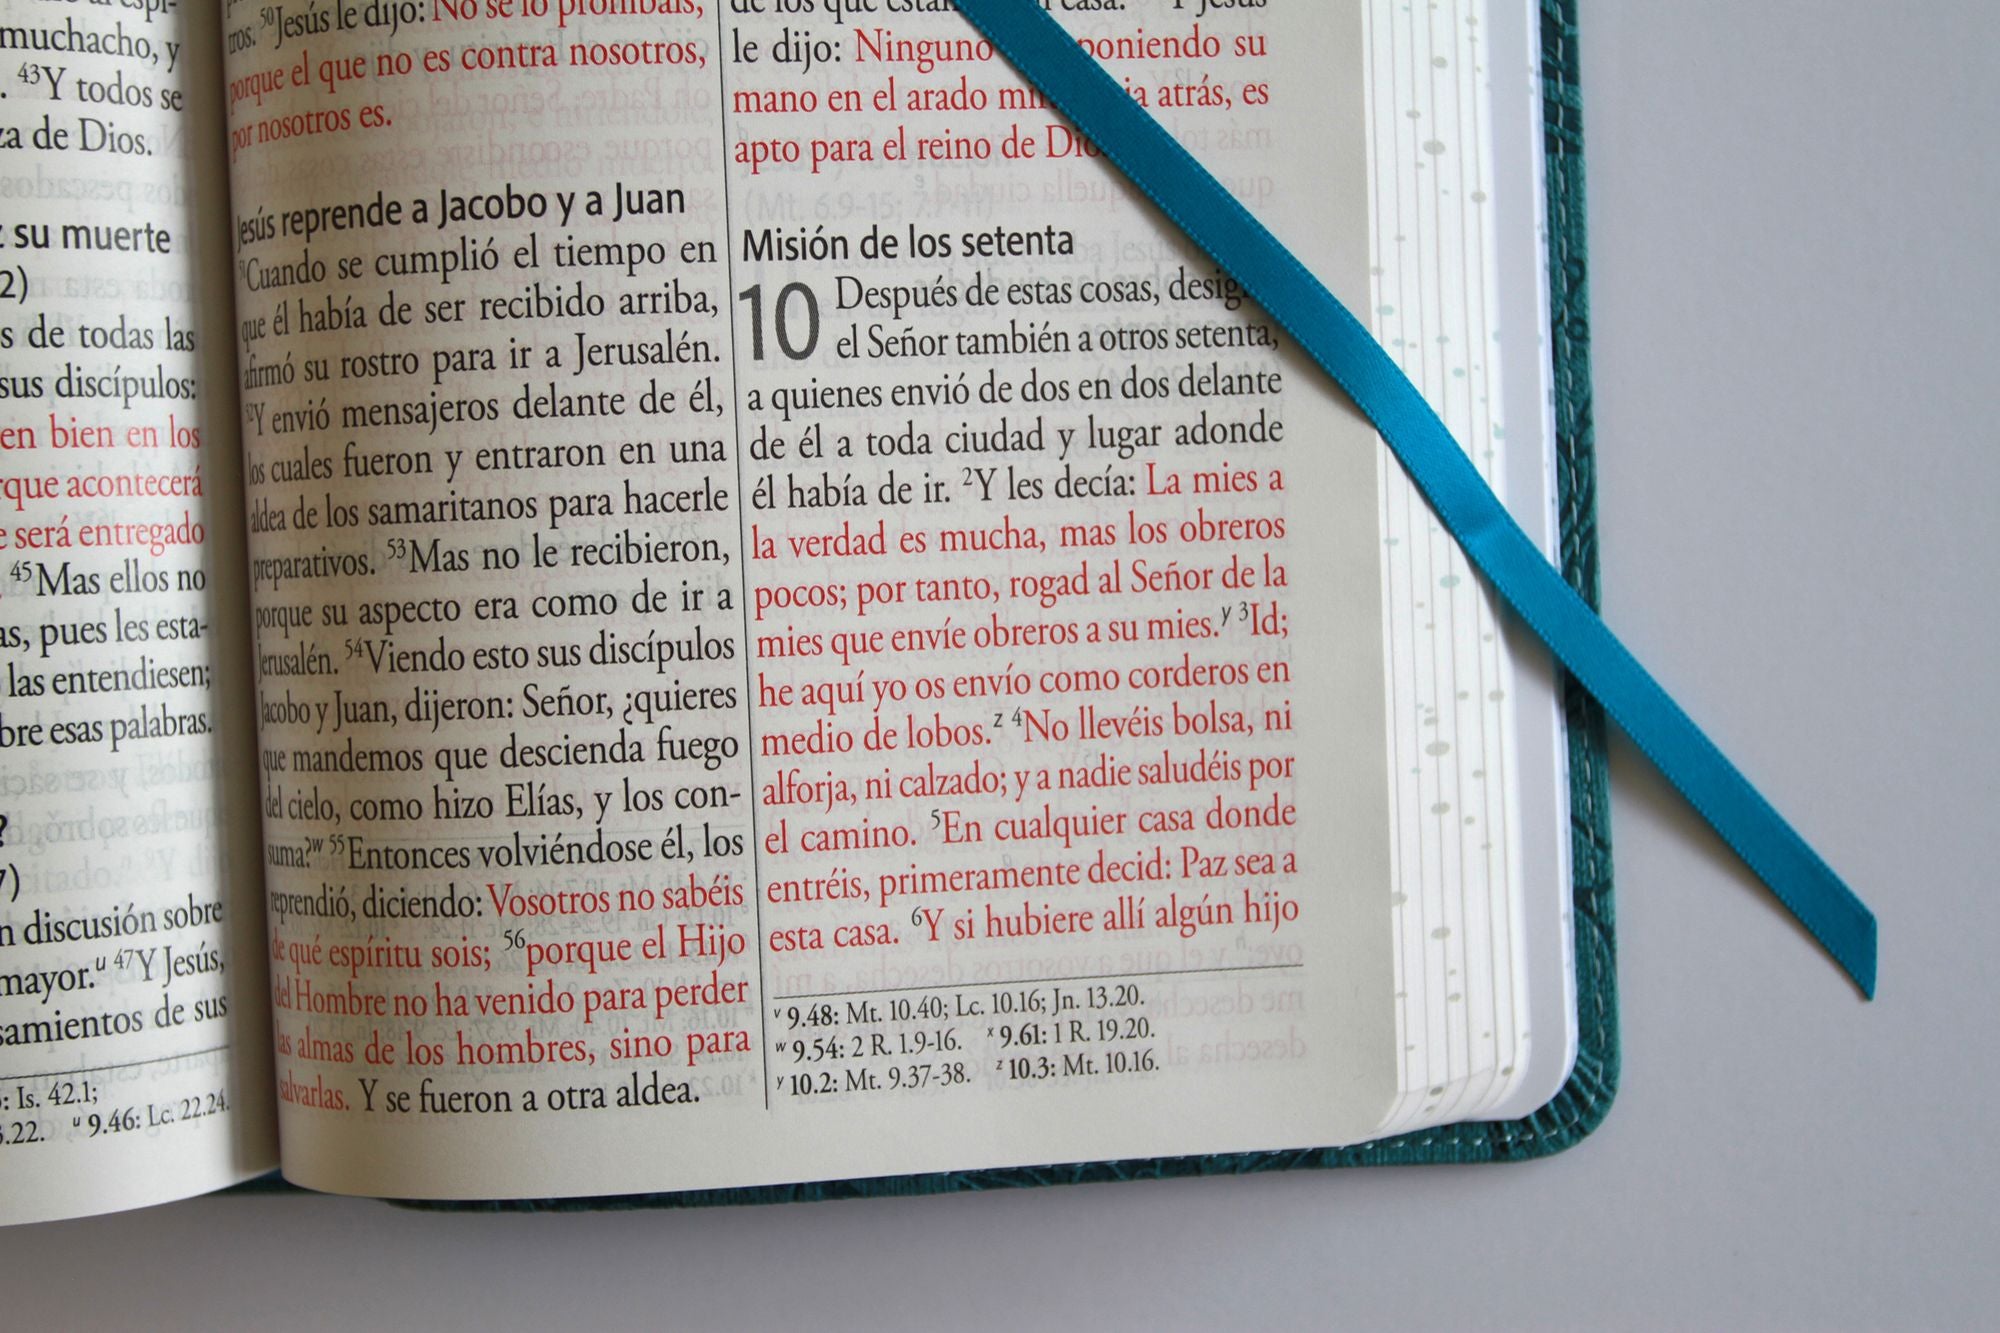 muchacho, y
. 43Y todos se
za de Dios.
su muerte
2)
s de todas las
sus discípulos:
en bien en los
rque acontecerá
e será entregado
45Mas ellos no
as, pues les esta-
las entendiesen;
bre esas palabras.
?
7)
n discusión sobre
mayor.u 47Y Jesús,
samientos de sus
: Is. 42.1;
.22. u 9.46: Lc. 22.24.
tros. 50Jesús le dijo: No se lo prohibáis,
porque el que no es contra nosotros,
por nosotros es.
Jesús reprende a Jacobo y a Juan
51Cuando se cumplió el tiempo en
que él había de ser recibido arriba,
afirmó su rostro para ir a Jerusalén.
52Y envió mensajeros delante de él,
los cuales fueron y entraron en una
aldea de los samaritanos para hacerle
preparativos. 53Mas no le recibieron,
porque su aspecto era como de ir a
Jerusalén. 54Viendo esto sus discípulos
Jacobo y Juan, dijeron: Señor, ¿quieres
que mandemos que descienda fuego
del cielo, como hizo Elías, y los con-
suma?w 55Entonces volviéndose él, los
reprendió, diciendo: Vosotros no sabéis
de qué espíritu sois; 56porque el Hijo
del Hombre no ha venido para perder
las almas de los hombres, sino para
salvarlas. Y se fueron a otra aldea.
de los que están casa. Y Jesús
le dijo: Ninguno poniendo su
mano en el arado mi ia atrás, es
apto para el reino de Dio
Misión de los setenta
10 Después de estas cosas, desig
el Señor también a otros setenta,
a quienes envió de dos en dos delante
de él a toda ciudad y lugar adonde
él había de ir. 2Y les decía: La mies a
la verdad es mucha, mas los obreros
pocos; por tanto, rogad al Señor de la
mies que envíe obreros a su mies.y 3Id;
he aquí yo os envío como corderos en
medio de lobos.z 4No llevéis bolsa, ni
alforja, ni calzado; y a nadie saludéis por
el camino. 5En cualquier casa donde
entréis, primeramente decid: Paz sea a
esta casa. 6Y si hubiere allí algún hijo
v 9.48: Mt. 10.40; Lc. 10.16; Jn. 13.20.
w 9.54: 2 R. 1.9-16. x 9.61: 1 R. 19.20.
y 10.2: Mt. 9.37-38. z 10.3: Mt. 10.16.